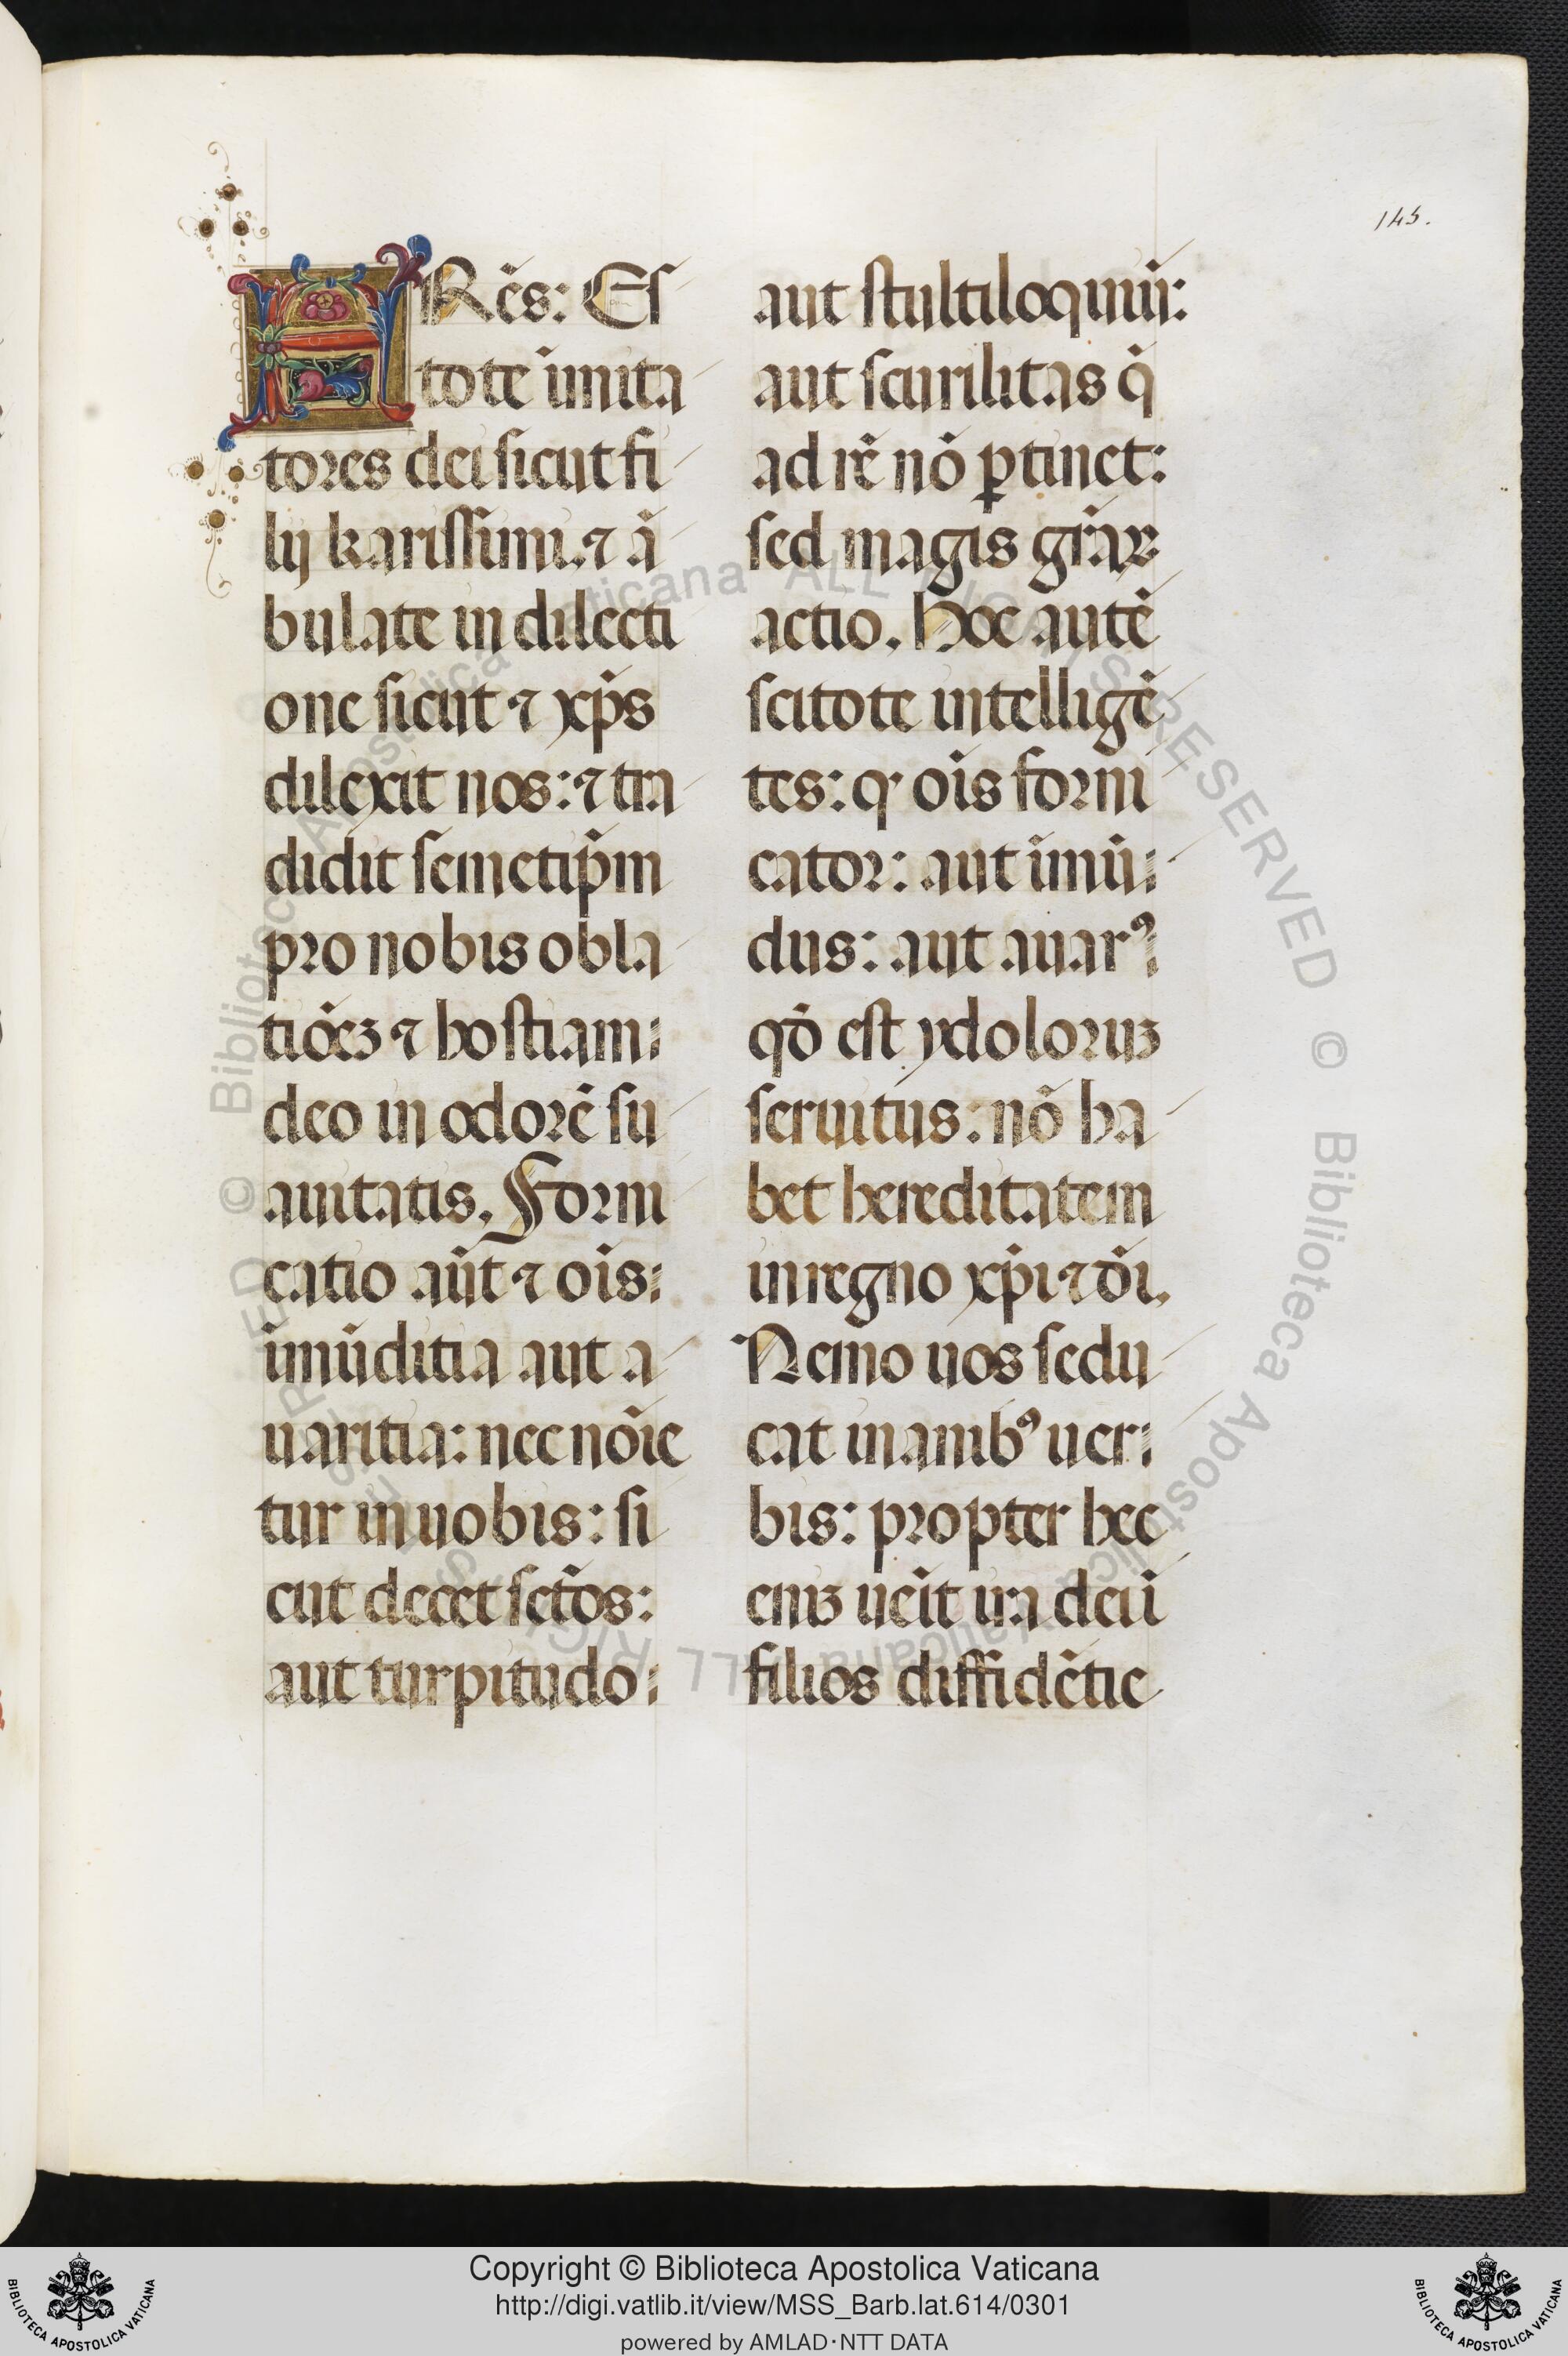 145.
FRc̃s: Eſ
tote imita
tores dei ſicut fi
lij kariſſimi. ⁊ ā
bulate in dilecti
one ſicut ⁊ xp̄s
dilexit nos: ⁊ tra
didit ſemetip̄m
pro nobis obla
tiōeꝫ ⁊ hoſtiam
deo in odorē ſu
auitatis. Forni
catio aūt ⁊ oīs
imūditia aut a
uaritia: nec noīe
tur in uobis: ſi
cut decet ſctōs:
aut turpitudo
aut ſtultiloquiū:
aut ſcurilitas q̄
ad rē nō ꝑtinet:
ſed magis gr̄aꝝ
actio. Hoc autē
ſcitote intelligē
tes: ꝙ oīs forni
cator: aut imū
dus: aut auarꝰ
qđ eſt ydoloruꝫ
ſeruitus: nō ha
bet hereditatem
in regno xp̄i ⁊ dī.
Nemo uos ſedu
cat inanibꝰ uer
bis: propter hec
eniꝫ ueīt ira dei ī
filios diffidētie
© Biblioteca Apostolica Vaticana ALL RIGHTS RESERVED © Biblioteca Apostolica Vaticana ALL RIGHTS RESERVED
Copyright © Biblioteca Apostolica Vaticana
http://digi.vatlib.it/view/MSS_Barb.lat.614/0301
powered by AMLAD·NTT DATA
BIBLIOTECA APOSTOLICA VATICANA
BIBLIOTECA APOSTOLICA VATICANA